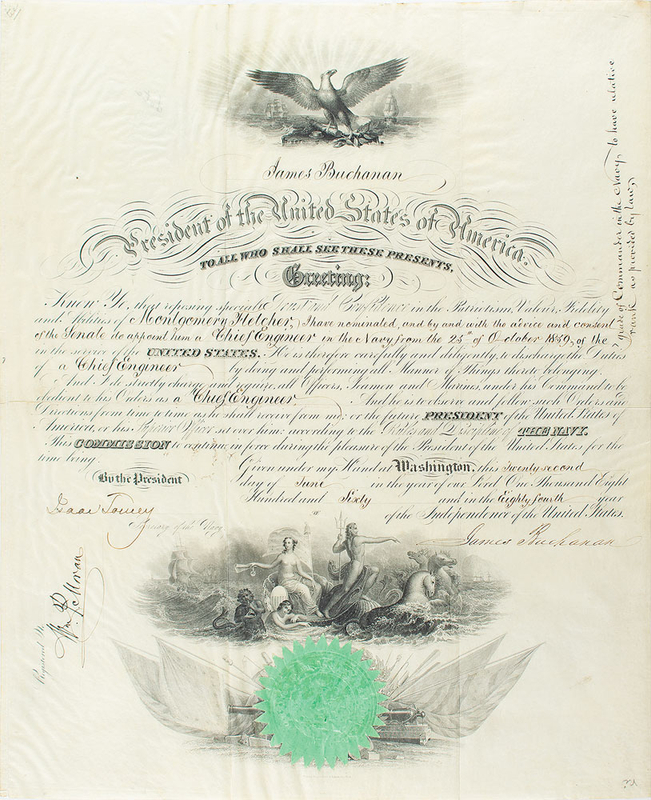 James Buchanan
President of the United States of America.
TO ALL WHO SHALL SEE THESE PRESENTS,
Greeting:
Know Ye, that reposing special Trust and Confidence in the Patriotism, Valour, Fidelity
and Abilities of Montgomery Fletcher, I have nominated, and by and with the advice and consent
of the Senate do appoint him a Chief Engineer in the Navy from the 25th of October 1859, of the
grade of Commander in the Navy, to have relative
rank as provided by law,
in the service of the UNITED STATES. He is therefore carefully and diligently to discharge the Duties
of a Chief Engineer by doing and performing all Manner of Things thereto belonging.
And I do strictly charge and require all Officers, Seamen and Marines, under his Command to be
obedient to his Orders as a Chief Engineer And he is to observe and follow such Orders and
Directions from time to time as he shall receive from me, or the future PRESIDENT of the United States of
America, or his Superior Officer set over him, according to the Rules and Discipline of THE NAVY.
This COMMISSION to continue in force during the pleasure of the President of the United States for the
time being.
Given under my Hand at Washington, this twenty second
day of June in the year of our Lord One Thousand Eight
Hundred and Sixty and in the Eighty fourth year
of the Independence of the United States.
By the President
James Buchanan
Isaac Toucey
Secretary of the Navy
Registered
Wm P. Moran